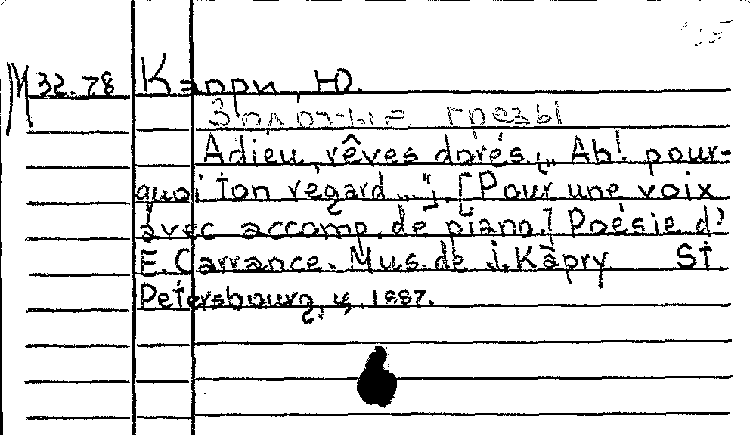 М 32.78 Капри, Ю.
Золотые грезы
Adieu, rêves dorés „Ah! pour-
quoi ton regard...". [Pour une voix
avec accomp. de piano.] Poésie d'
E. Carrance. Mus. de J. Kapry St
Petersbourg, 1887.